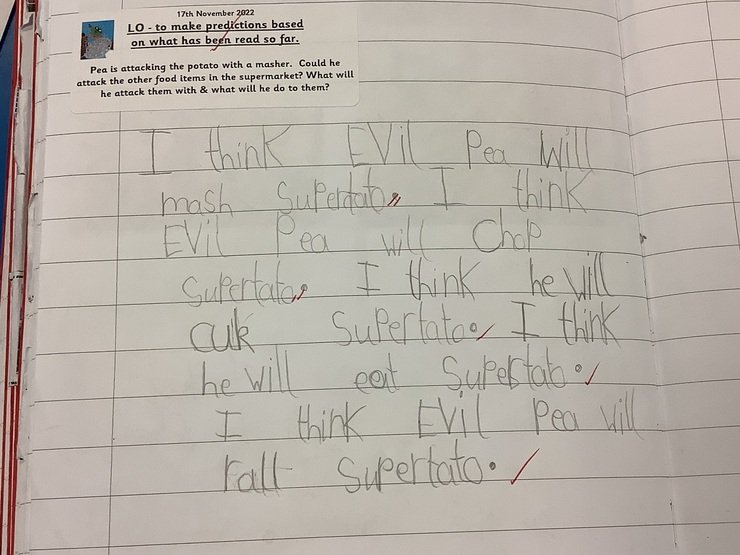 17th November 2022
LO - to make predictions based
on what has been read so far.
Pea is attacking the potato with a masher. Could he
attack the other food items in the supermarket? What will
he attack them with & what will he do to them?
I think EVil Pea Will
mash Supertato. I think
EVil Pea will Chop
Supertato. I think he will
cuk Supertato. I think
he will eat Supertato.
I think EVil Pea will
Supertato.